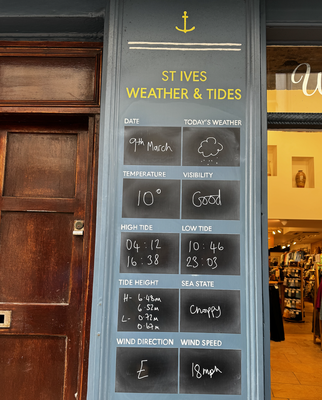 ST IVES
WEATHER & TIDES
DATE
9th March
TODAY'S WEATHER
TEMPERATURE
10°
VISIBILITY
Good
HIGH TIDE
04:12
16:38
LOW TIDE
10:46
23:03
TIDE HEIGHT
H- 6.48m
6.52m
L- 0.72m
0.67m
SEA STATE
Choppy
WIND DIRECTION
E
WIND SPEED
18mph